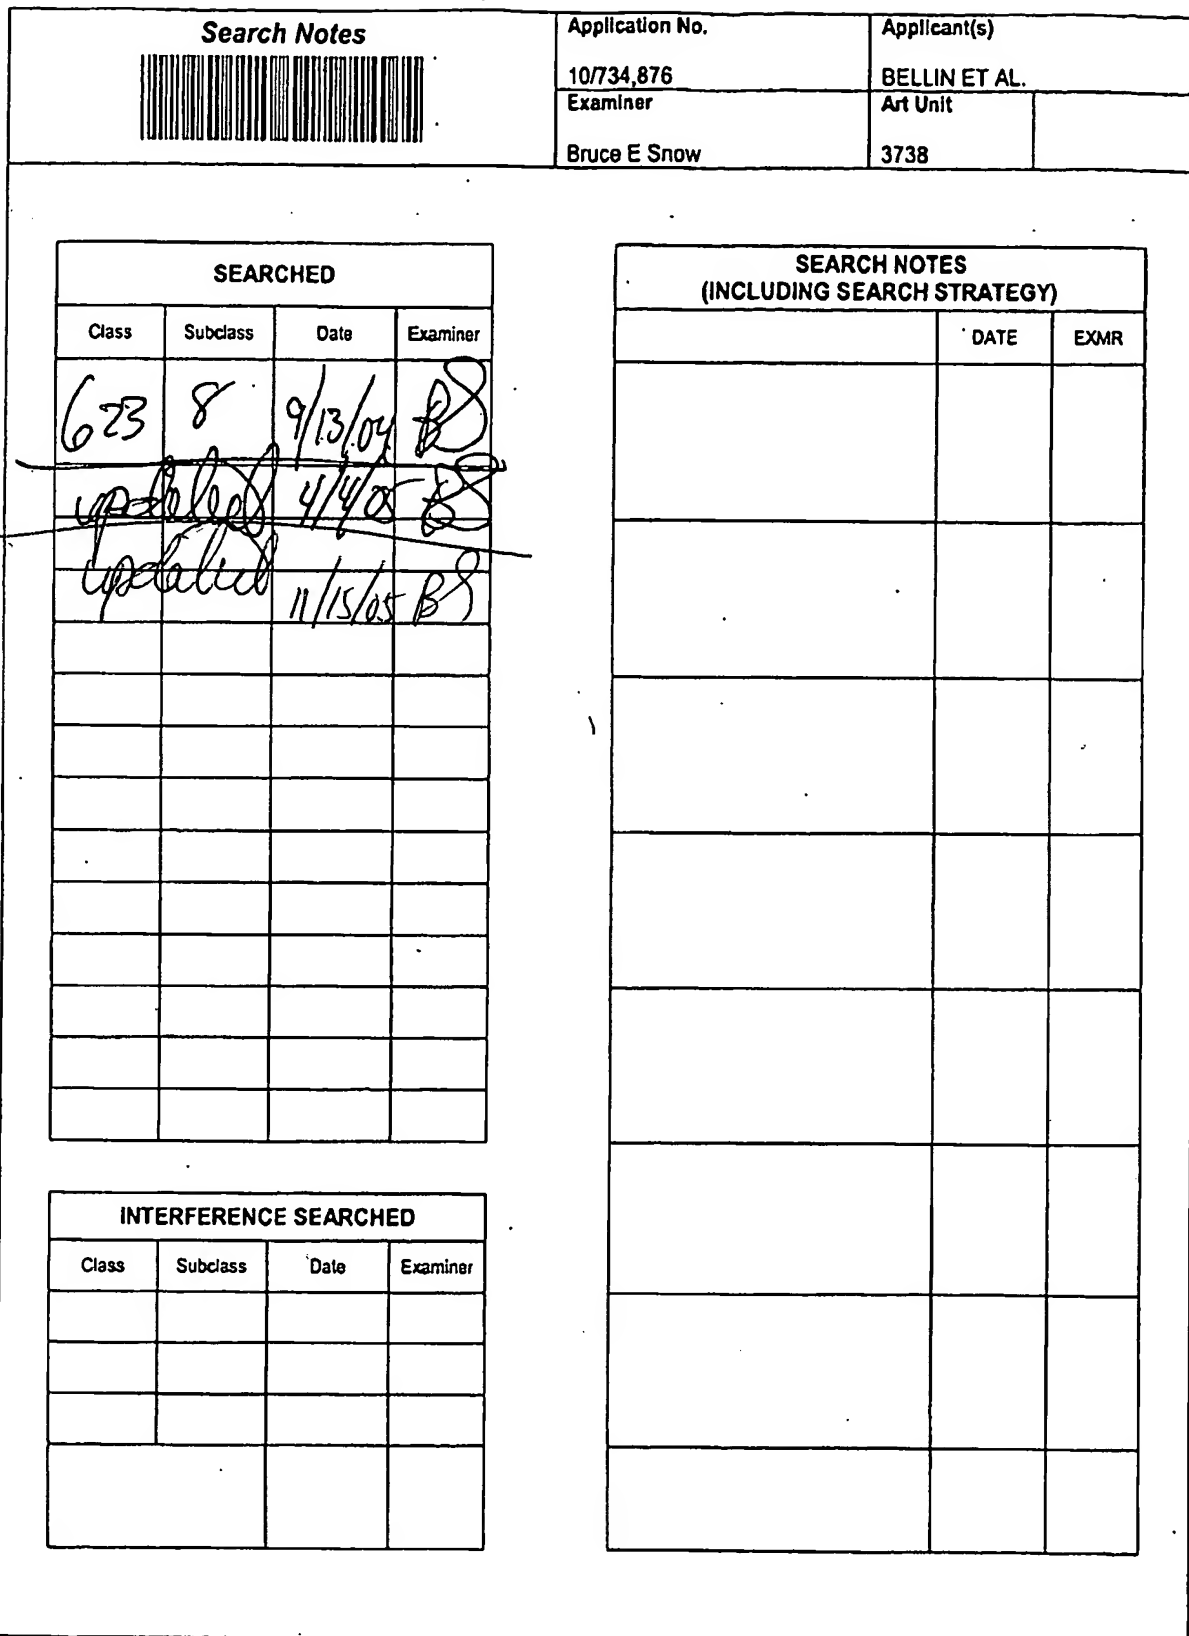 Search Notes
Application No.
Applicant(s)
10/734,876
BELLIN ET AL.
Examiner
Art Unit
Bruce E Snow
3738
SEARCHED
Class Subclass Date Examiner
623 8 9/13/04 BS
updated 4/4/05 BS
updated 11/15/05 BS
INTERFERENCE SEARCHED
Class Subclass Date Examiner
SEARCH NOTES
(INCLUDING SEARCH STRATEGY)
DATE EXMR